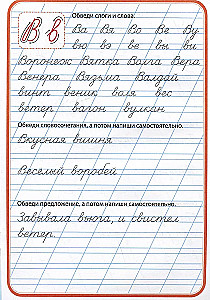 Обведи слоги и слова.
В в
Ва Вя Во Ве Ву
вю вэ ве вы ви
Воронеж Вятка Волга Вера
Венера Вязьма Валдай
винт веник воля вес
ветер вагон вулкан
Обведи словосочетания, а потом напиши самостоятельно.
Вкусная вишня
Весёлый воробей
Обведи предложение, а потом напиши самостоятельно.
Завывала вьюга, и свистел
ветер.